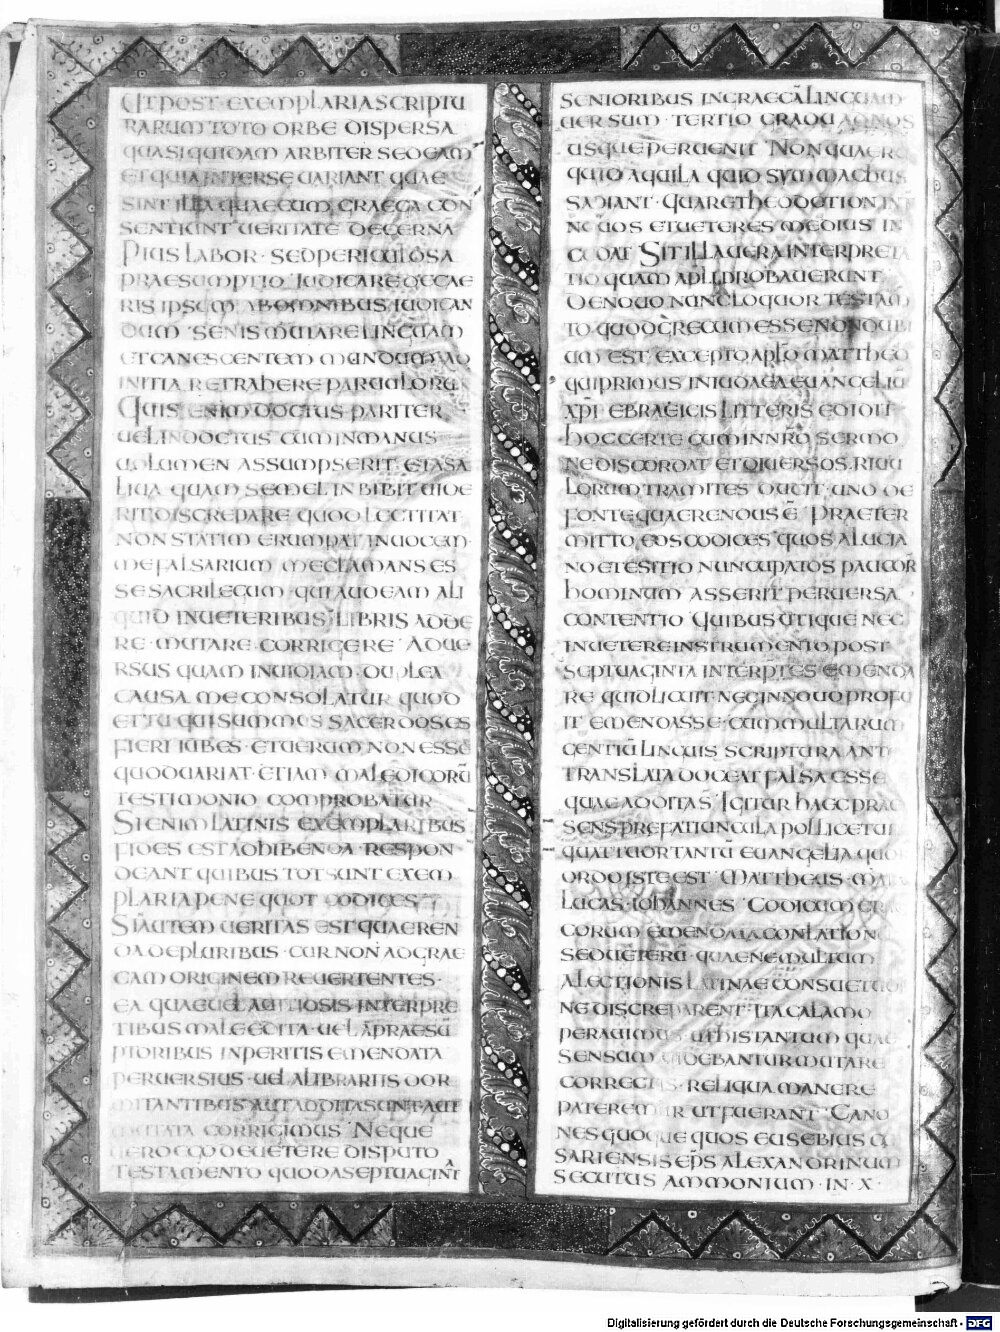 UT POST EXEMPLARIA SCRIPTU
RARUM TOTO ORBE DISPERSA
QUASI QUIDAM ARBITER SEDEAM
ET QUIA INTER SE UARIANT QUAE
SINT ILLA QUAE CUM GRAECA CON
SENTIUNT UERITATE DECERNA
PIUS LABOR · SED PERICULOSA
PRAESUMPTIO IUDICARE DE CAE
RIS IPSUM AB OMNIBUS IUDICAN
DUM · SENIS MUTARE LINGUAM
ET CANESCENTEM MUNDUM AD
INITIA RETRAHERE PARUULORUM
QUIS ENIM DOCTUS PARITER
UEL INDOCTUS CUM IN MANUS
UOLUMEN ASSUMPSERIT · ET A SA
LIUA QUAM SEMEL INBIBIT UIDE
RIT DISCREPARE QUOD LECTITAT
NON STATIM ERUMPAT IN UOCEM ·
ME FALSARIUM ME CLAMANS ES
SE SACRILEGUM · QUI AUDEAM ALI
QUID IN UETERIBUS LIBRIS ADDE
RE · MUTARE · CORRIGERE ADUE
RSUS QUAM INUIDIAM · DUPLEX
CAUSA ME CONSOLATUR QUOD
ET TU QUI SUMMUS SACERDOS ES
FIERI IUBES · ET UERUM NON ESSE
QUOD UARIAT · ETIAM MALEDICORŪ
TESTIMONIO COMPROBATUR
SI ENIM LATINIS EXEMPLARIBUS
FIDES EST ADHIBENDA · RESPON
DEANT QUIBUS TOT SUNT EXEM
PLARIA PENE QUOT CODICES ·
SI AUTEM UERITAS EST QUAEREN
DA DE PLURIBUS · CUR NON AD GRAE
CAM ORIGINEM REUERTENTES ·
EA QUAE UEL A UITIOSIS INTERPRE
TIBUS MALE EDITA UEL A PRAESŪ
PTORIBUS INPERITIS EMENDATA
PERUERSIUS · UEL A LIBRARIIS DOR
MITANTIBUS AUT ADDITA SUNT · AUT
MUTATA CORRIGIMUS NEQUE
UERO EGO DE UETERE DISPUTO
TESTAMENTO QUOD A SEPTUAGINT
SENIORIBUS IN GRAECĀ LINGUAM
UERSUM · TERTIO GRADU AD NOS
USQUE PERUENIT NON QUAERO
QUID AQUILA QUID SYMMACHUS
SAPIANT · QUARE THEODOTION IN
TER NOUOS ET UETERES MEDIUS IN
CEDAT SIT ILLA UERA INTERPRETA
TIO QUAM APLI PROBAUERUNT
DE NOUO NUNC LOQUOR TESTAM
TO QUOD GRECUM ESSE NON DUBI
UM EST EXCEPTO APLO MATTHEO
QUI PRIMUS IN IUDAEA EUANGELIŪ
XPI EBRAEICIS LITTERIS EDIDIT
HOC CERTE CUM IN NRO SERMO
NE DISCORDAT ET DIUERSOS RIUU
LORUM TRAMITES DUCIT · UNO DE
FONTE QUAERENDUS Ē PRAETER
MITTO EOS CODICES QUOS A LUCIA
NO ET ESITIO NUNCUPATOS PAUCOR
HOMINUM ASSERIT PERUERSA
CONTENTIO QUIBUS UTIQUE NEC
IN UETERE INSTRUMENTO POST
SEPTUAGINTA INTERPTES EMENDA
RE QUID LICUIT NEC IN NOUO PROFU
IT EMENDASSE · CUM MULTARUM
GENTIŪ LINGUIS SCRIPTURA ANTE
TRANSLATA DOCEAT FALSA ESSE
QUAE ADDITA S IGITUR HAEC PRAE
SENS PREFATIUNCULA POLLICETUR
QUATTUOR TANTŪ EUANGELIA QUOR
ORDO ISTE EST MATTHEUS · MAR
LUCAS · IOHANNES CODICUM GRE
CORUM EMENDATA CONLATIONE
SED UETERŪ · QUAE NE MULTUM
A LECTIONIS LATINAE CONSUETUDI
NE DISCREPARENT · ITA CALAMO
PERAUIMUS UT HIS TANTUM QUAE
SENSUM UIDEBANTUR MUTARE
CORRECTIS · RELIQUA MANERE
PATEREMUR UT FUERANT CANO
NES QUOQUE QUOS EUSEBIUS CE
SARIENSIS EPS ALEXANDRINUM
SECUTUS AMMONIUM · IN · X ·
Digitalisierung gefördert durch die Deutsche Forschungsgemeinschaft - DFG